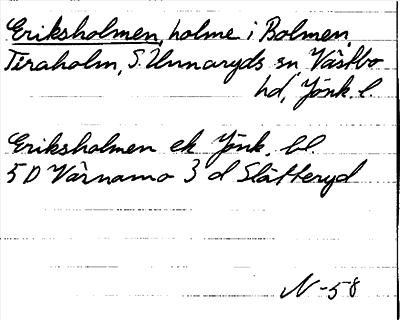 Eriksholmen, holme i Bolmen,
Tiraholm, S. Unnaryds sn, Västbo
hd, Jönk. l.
Eriksholmen ek Jönk. bl.
5 D Värnamo 3 d Slätteryd
N-58